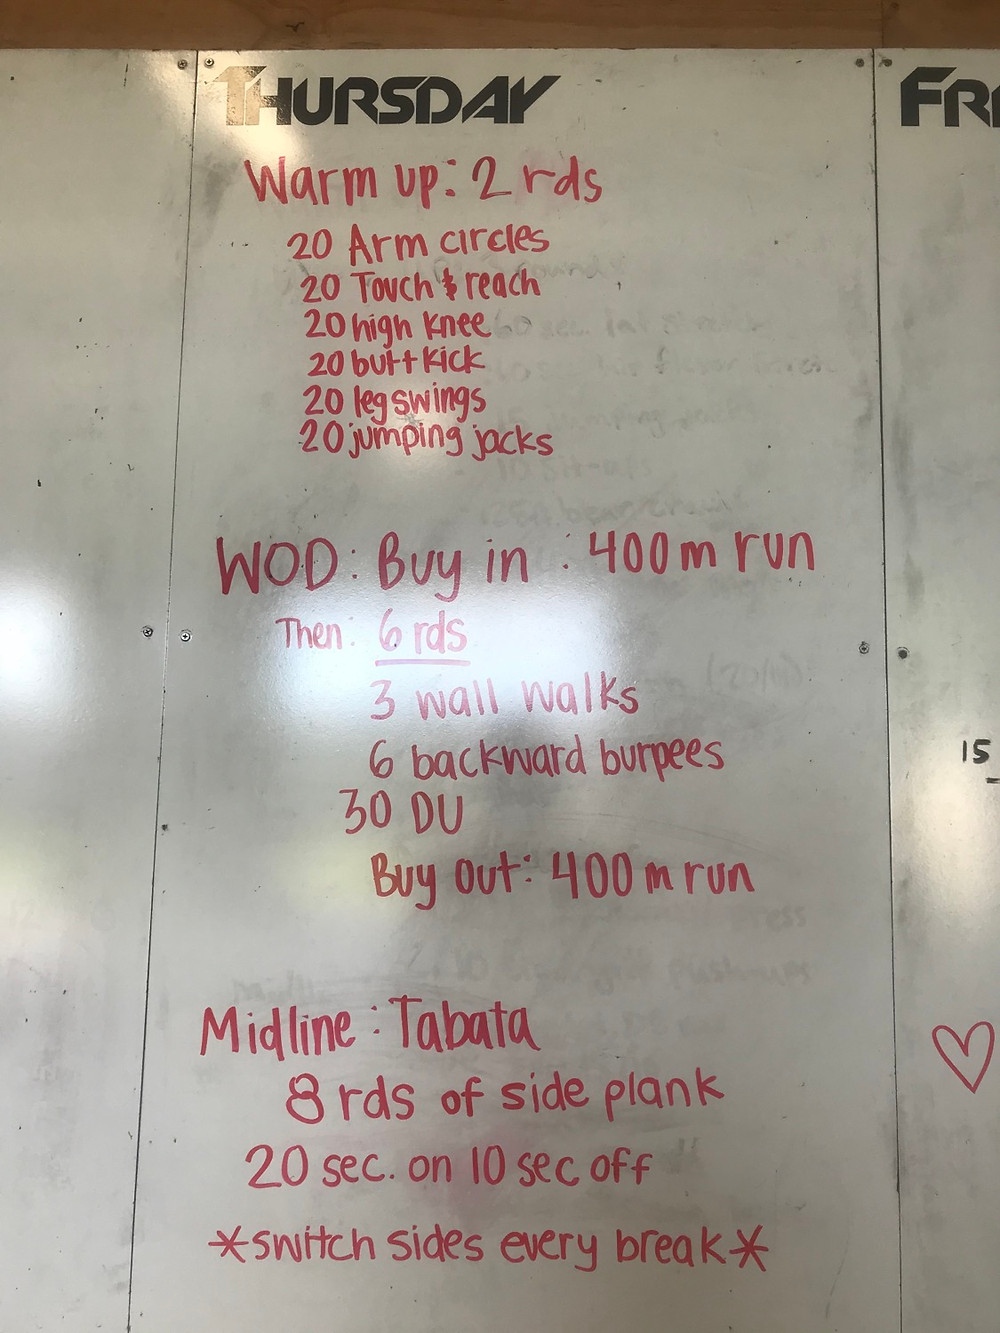 THURSDAY
FR
Warm up: 2 rds
20 Arm circles
20 Touch & reach
20 high knee
20 butt kick
20 leg swings
20 jumping jacks
WOD: Buy in : 400m run
Then: 6 rds
3 wall walks
6 backward burpees
30 DU
Buy out: 400m run
Midline: Tabata
8 rds of side plank
20 sec. on 10 sec off
*switch sides every break*
15